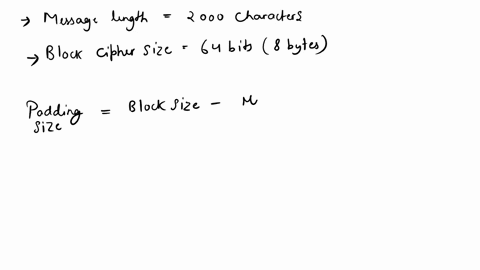 → Message length = 2000 characters
→ Block cipher size = 64 bits (8 bytes)
Padding size = Block size - M